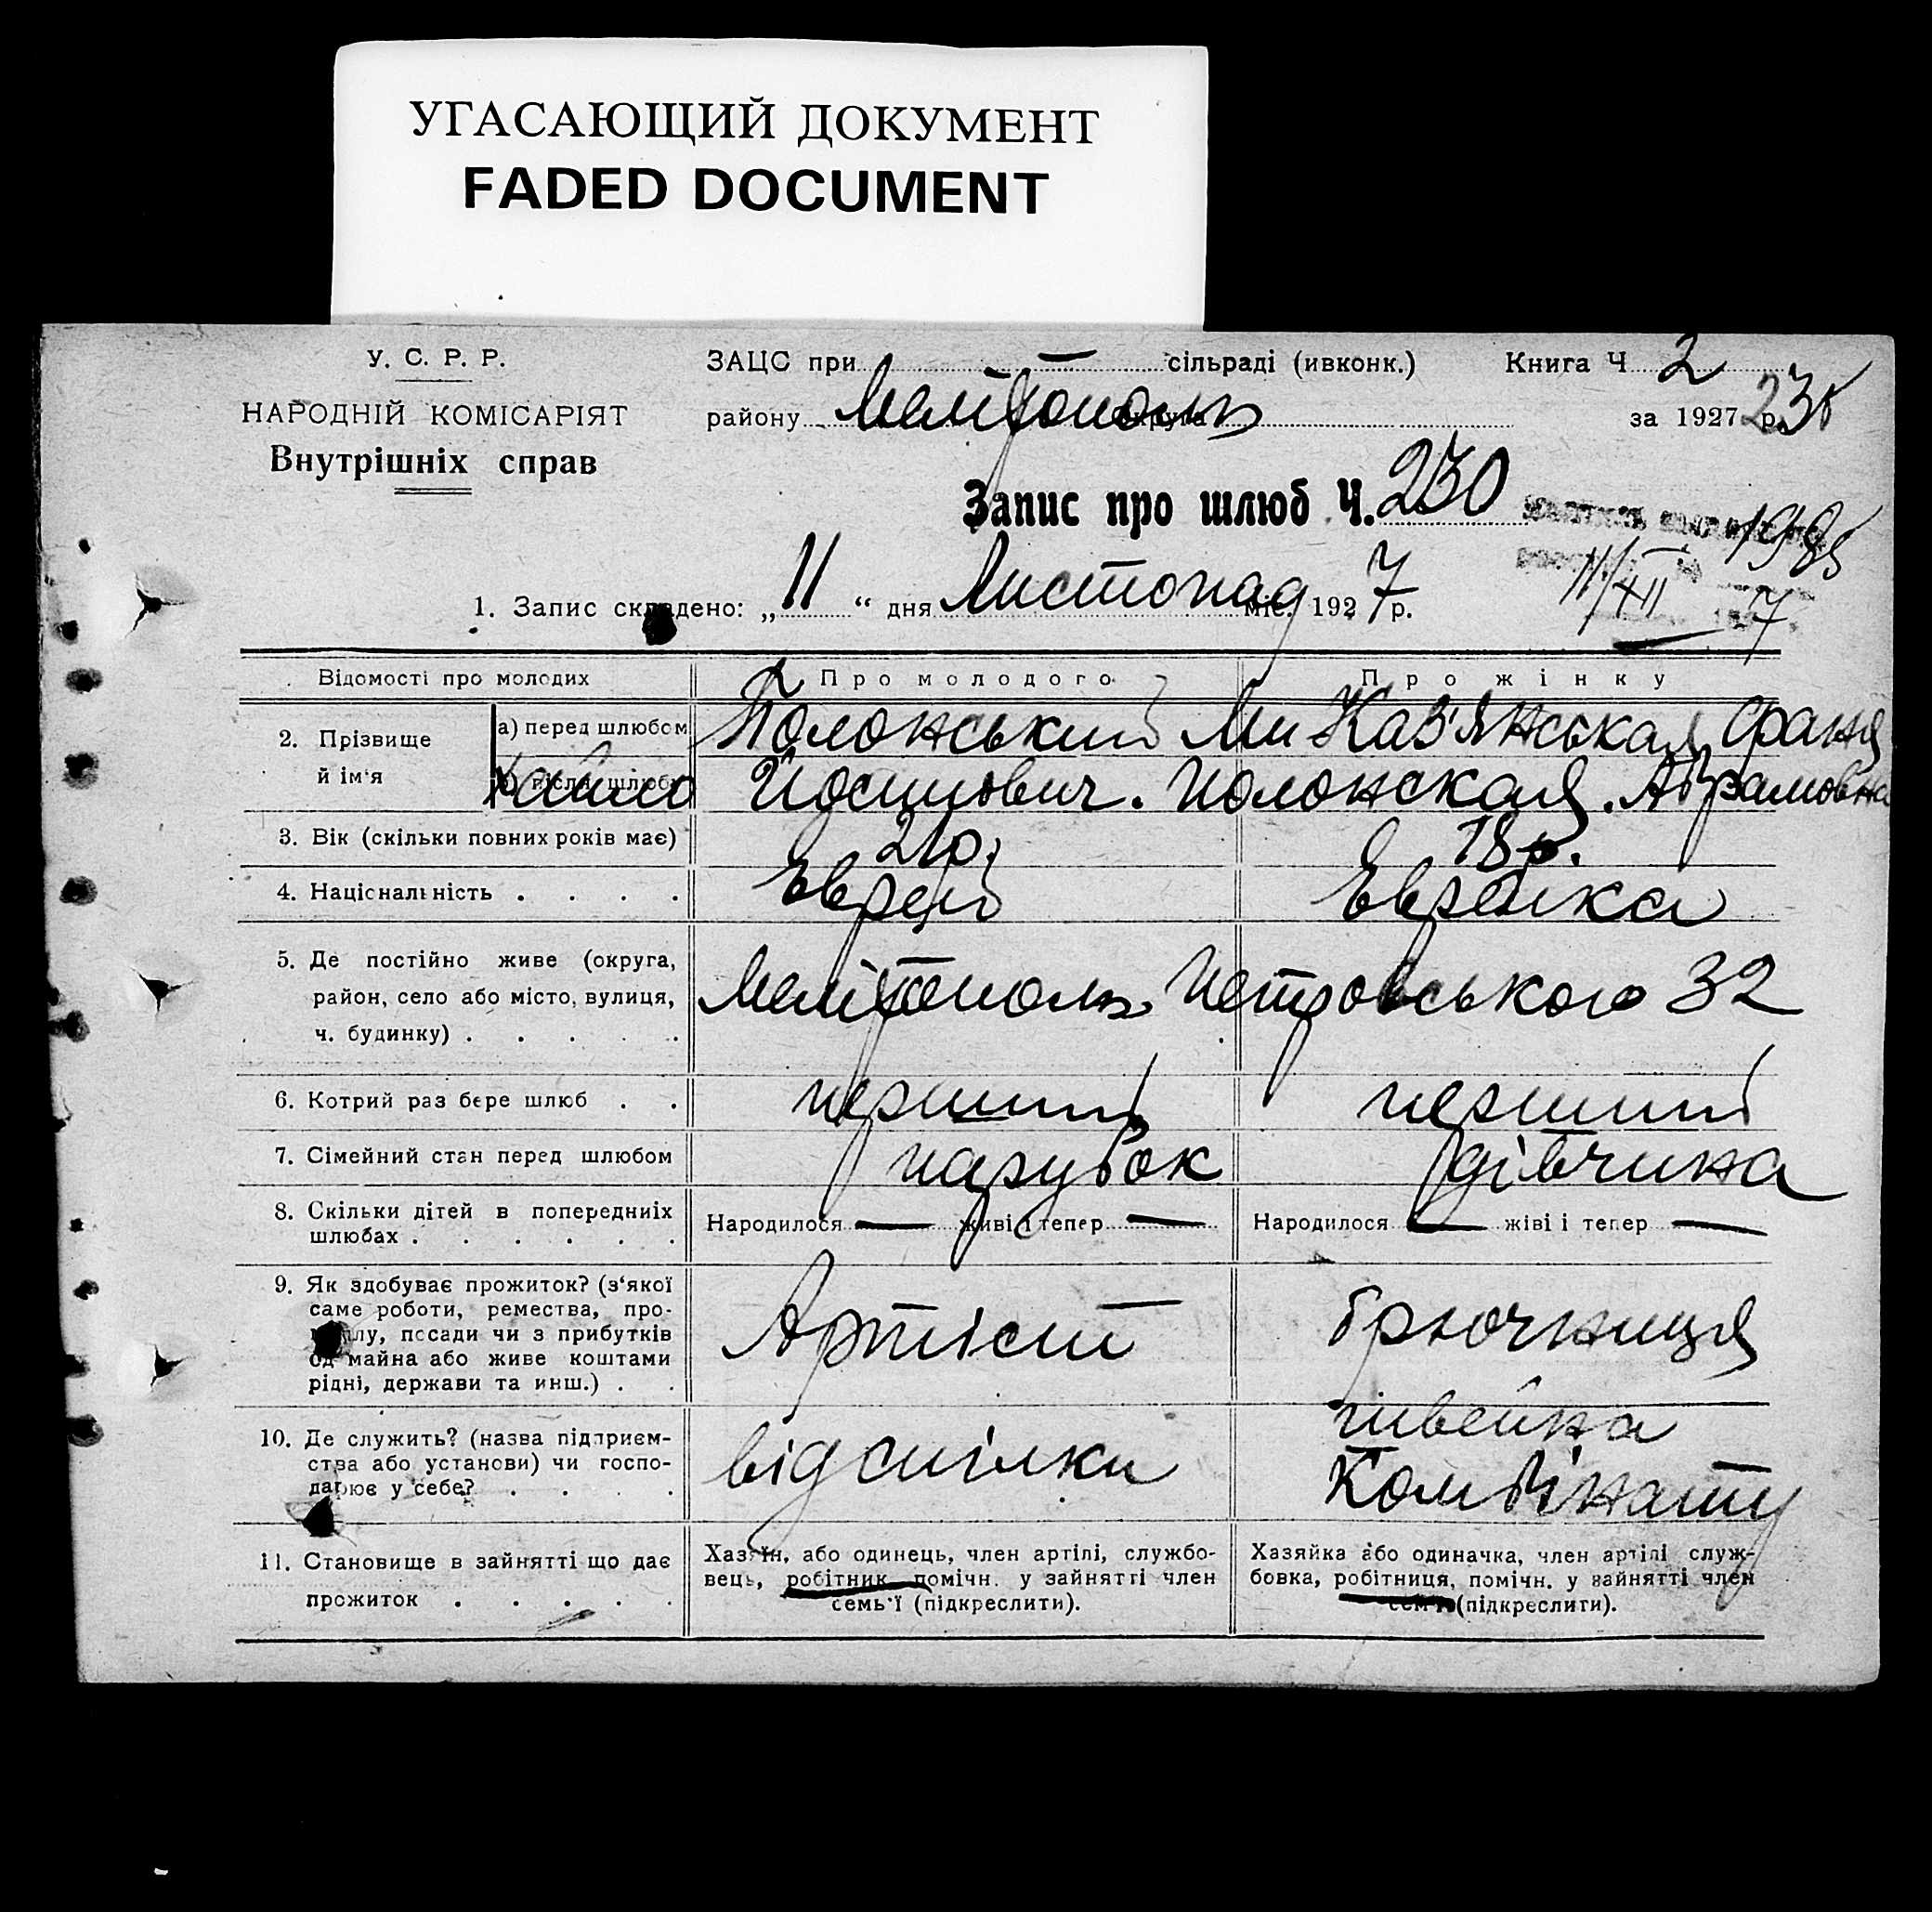 УГАСАЮЩИЙ ДОКУМЕНТ
FADED DOCUMENT
У. С. Р. Р.
НАРОДНІЙ КОМІСАРІЯТ
Внутрішніх справ
ЗАЦС при — сільраді (ивконк.)
Книга Ч 2
району Меліτополь округа
за 1927 р.
Запис про шлюб Ч. 230
1. Запис складено: „11“ дня Листопад міс. 1927 р.
11/XII 7
Відомості про молодих
Про молодого
Про жінку
2. Прізвище й ім'я
а) перед шлюбом
Полонський
Каз'янськая Фаня
Хаимо Йосипович. Полонская. Абрамовна
3. Вік (скільки повних років має)
21 р.
18 р.
4. Національність . . . .
Еврей
Еврейка
5. Де постійно живе (округа,
район, село або місто, вулиця,
ч. будинку) . . . . .
Меліτополь Петровського 32
6. Котрий раз бере шлюб . .
перший
перший
7. Сімейний стан перед шлюбом
парубок
дівчина
8. Скільки дітей в попередніх
шлюбах . . . . . .
Народилося — живі і тепер —
Народилося — жіві і тепер —
9. Як здобуває прожиток? (з'якої
саме роботи, ремества, про-
мислу, посади чи з прибутків
од майна або живе коштами
рідні, держави та инш.) . .
Артіст
брючниця
10. Де служить? (назва підприєм-
ства або установи) чи госпо-
дарює у себе? . . . .
від спілки
швейна
Комбінату
11. Становище в зайнятті що дає
прожиток . . . . .
Хазяїн, або одинець, член артілі, службо-
вець, робітник, помічн. у зайнятті член
семь'ї (підкреслити).
Хазяйка або одиначка, член артілі служ-
бовка, робітниця, помічн. у зайнятті член
сем'ї (підкреслити).